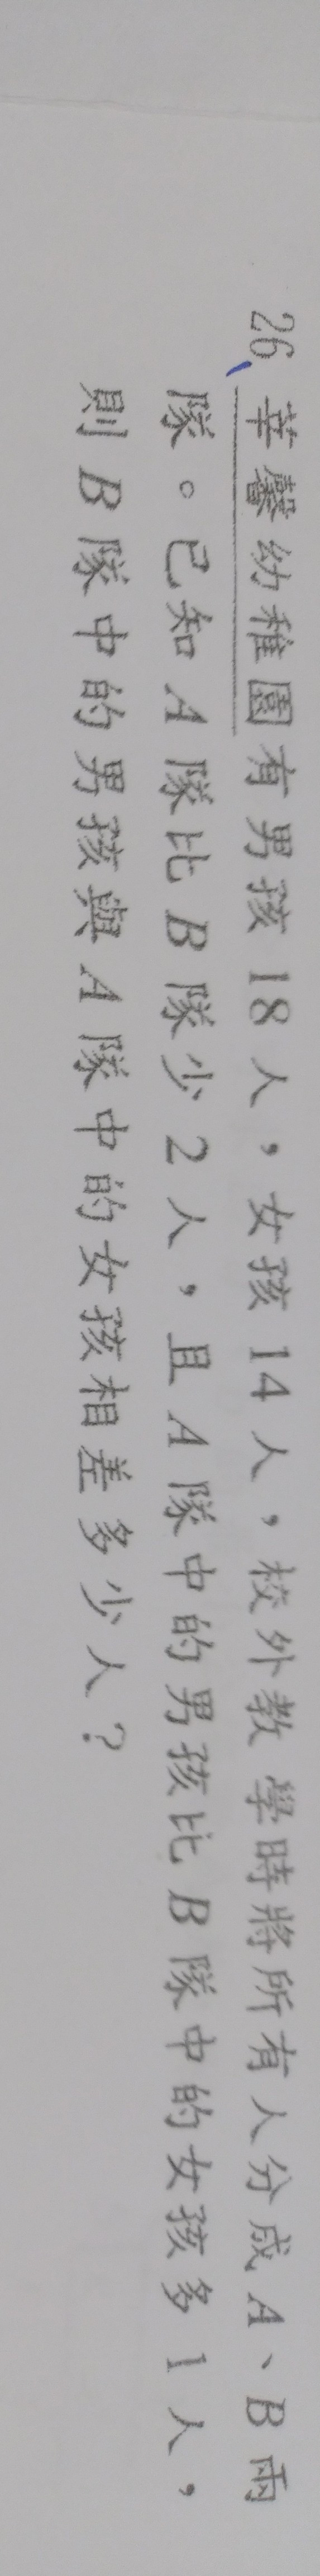 26 莘馨幼稚園有男孩 18 人，女孩 14 人，校外教學時將所有人分成 A、B 兩
隊。已知 A 隊比 B 隊少 2 人，且 A 隊中的男孩比 B 隊中的女孩多 1 人，
則 B 隊中的男孩與 A 隊中的女孩相差多少人？